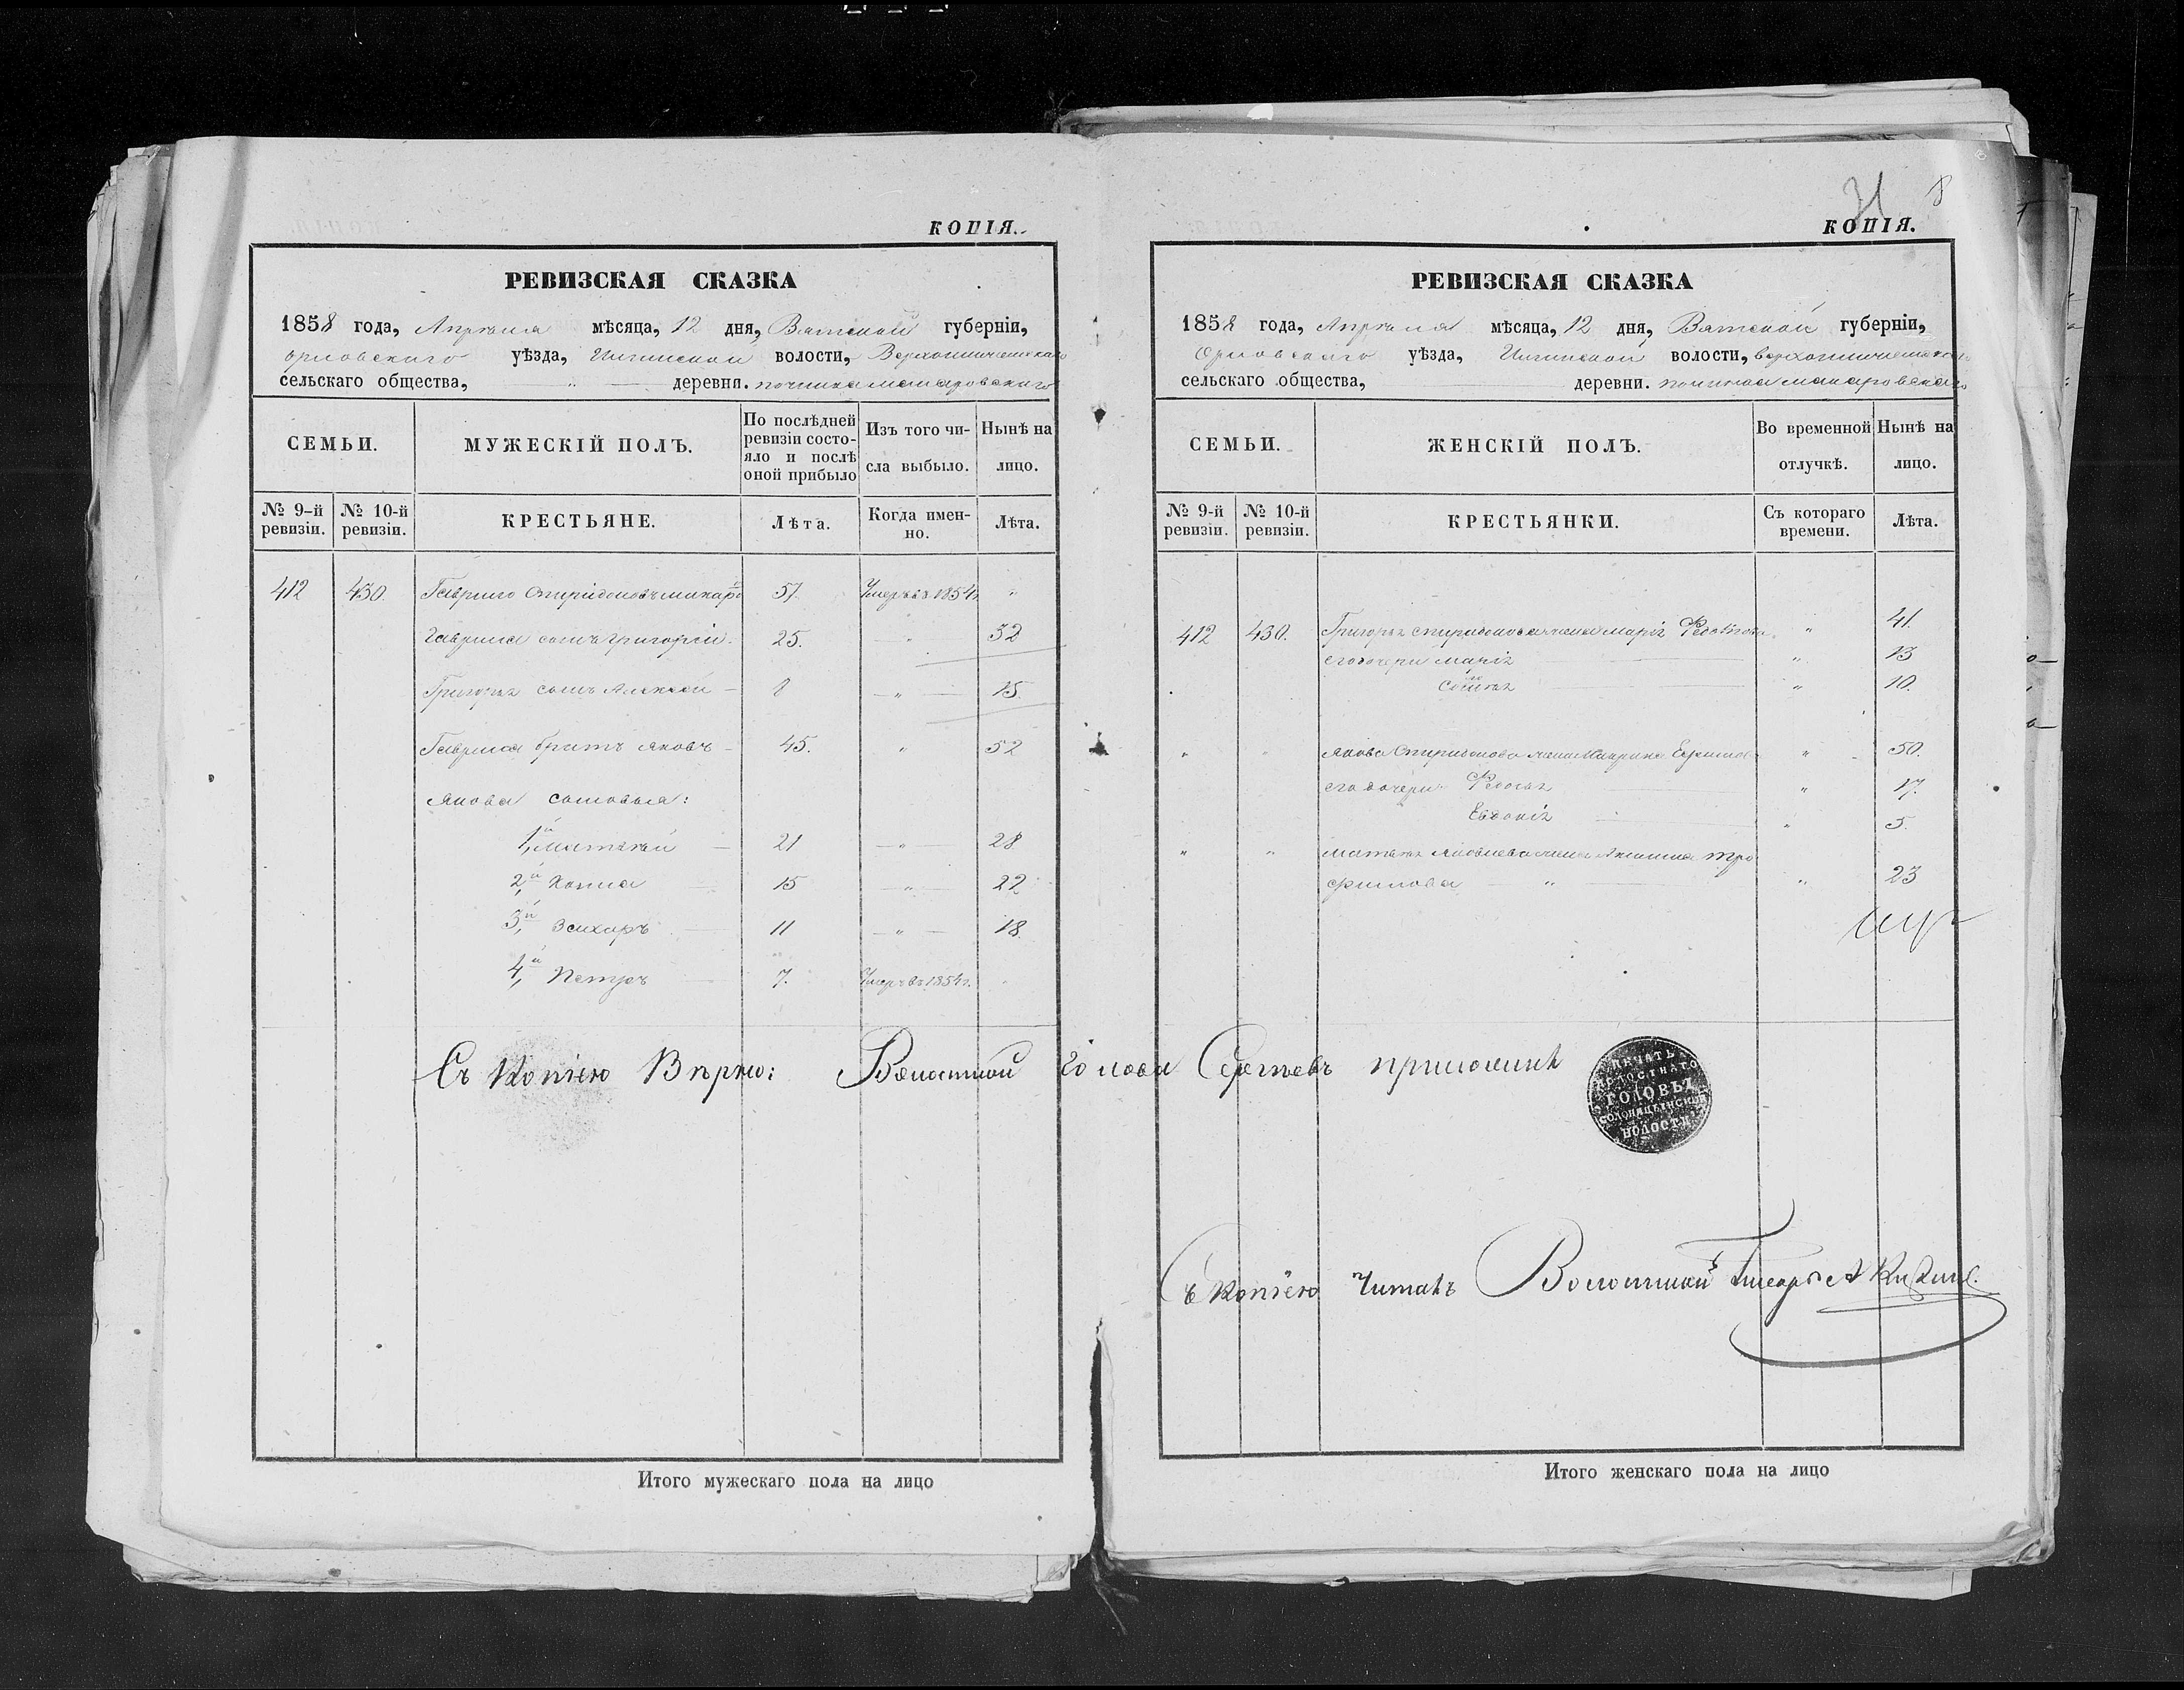 КОПІЯ.
РЕВИЗСКАЯ СКАЗКА
1858 года, Апрѣля мѣсяца, 12 дня, Вятской губерніи,
Орловскаго уѣзда, волости,
сельскаго общества, " деревня. починка Макаровскаго
СЕМЬИ.
МУЖЕСКІЙ ПОЛЪ.
По послѣдней ревизіи состояло и послѣ оной прибыло
Изъ того числа выбыло.
Нынѣ на лицо.
№ 9-й ревизіи.
№ 10-й ревизіи.
КРЕСТЬЯНЕ.
Лѣта.
Когда именно.
Лѣта.
412 430. Гаврило Спиридоновъ 57. Умеръ въ 1854 г. "
Гаврила сынъ Григорій. 25. " 32
Григорья сынъ Алексѣй 8 " 15.
Гаврила братъ Яковъ 45. " 52
Якова сыновья:
1й, Матвѣй 21 " 28
2й, 15 " 22
3й, Захаръ 11 " 18
4й, Петръ 7. Умеръ въ 1854 г. "
Съ Копіею Вѣрно: Волостной голова Сергѣевъ приложилъ
Итого мужескаго пола на лицо
31 8
КОПІЯ.
РЕВИЗСКАЯ СКАЗКА
1858 года, Апрѣля мѣсяца, 12 дня, Вятской губерніи,
Орловскаго уѣзда, волости,
сельскаго общества, деревни. починка Макаровскаго
СЕМЬИ.
ЖЕНСКІЙ ПОЛЪ.
Во временной отлучкѣ.
Нынѣ на лицо.
№ 9-й ревизіи.
№ 10-й ревизіи.
КРЕСТЬЯНКИ.
Съ котораго времени.
Лѣта.
412 430. Григорья жена Марія " 41.
его дочери Марія " 13
" 10.
" " Якова Спиридонова жена Ефимова " 50.
его дочери Федосья " 17.
Евдокія " 5.
" " Матвѣя Яковлева жена Акилина Тро
фимова " " 23
ПЕЧАТЬ
ВОЛОСТНАГО
ГОЛОВЫ
СОЛОНИЦЫНСКОЙ
ВОЛОСТИ
Съ Копіею Читалъ Волостной Писарь
Итого женскаго пола на лицо